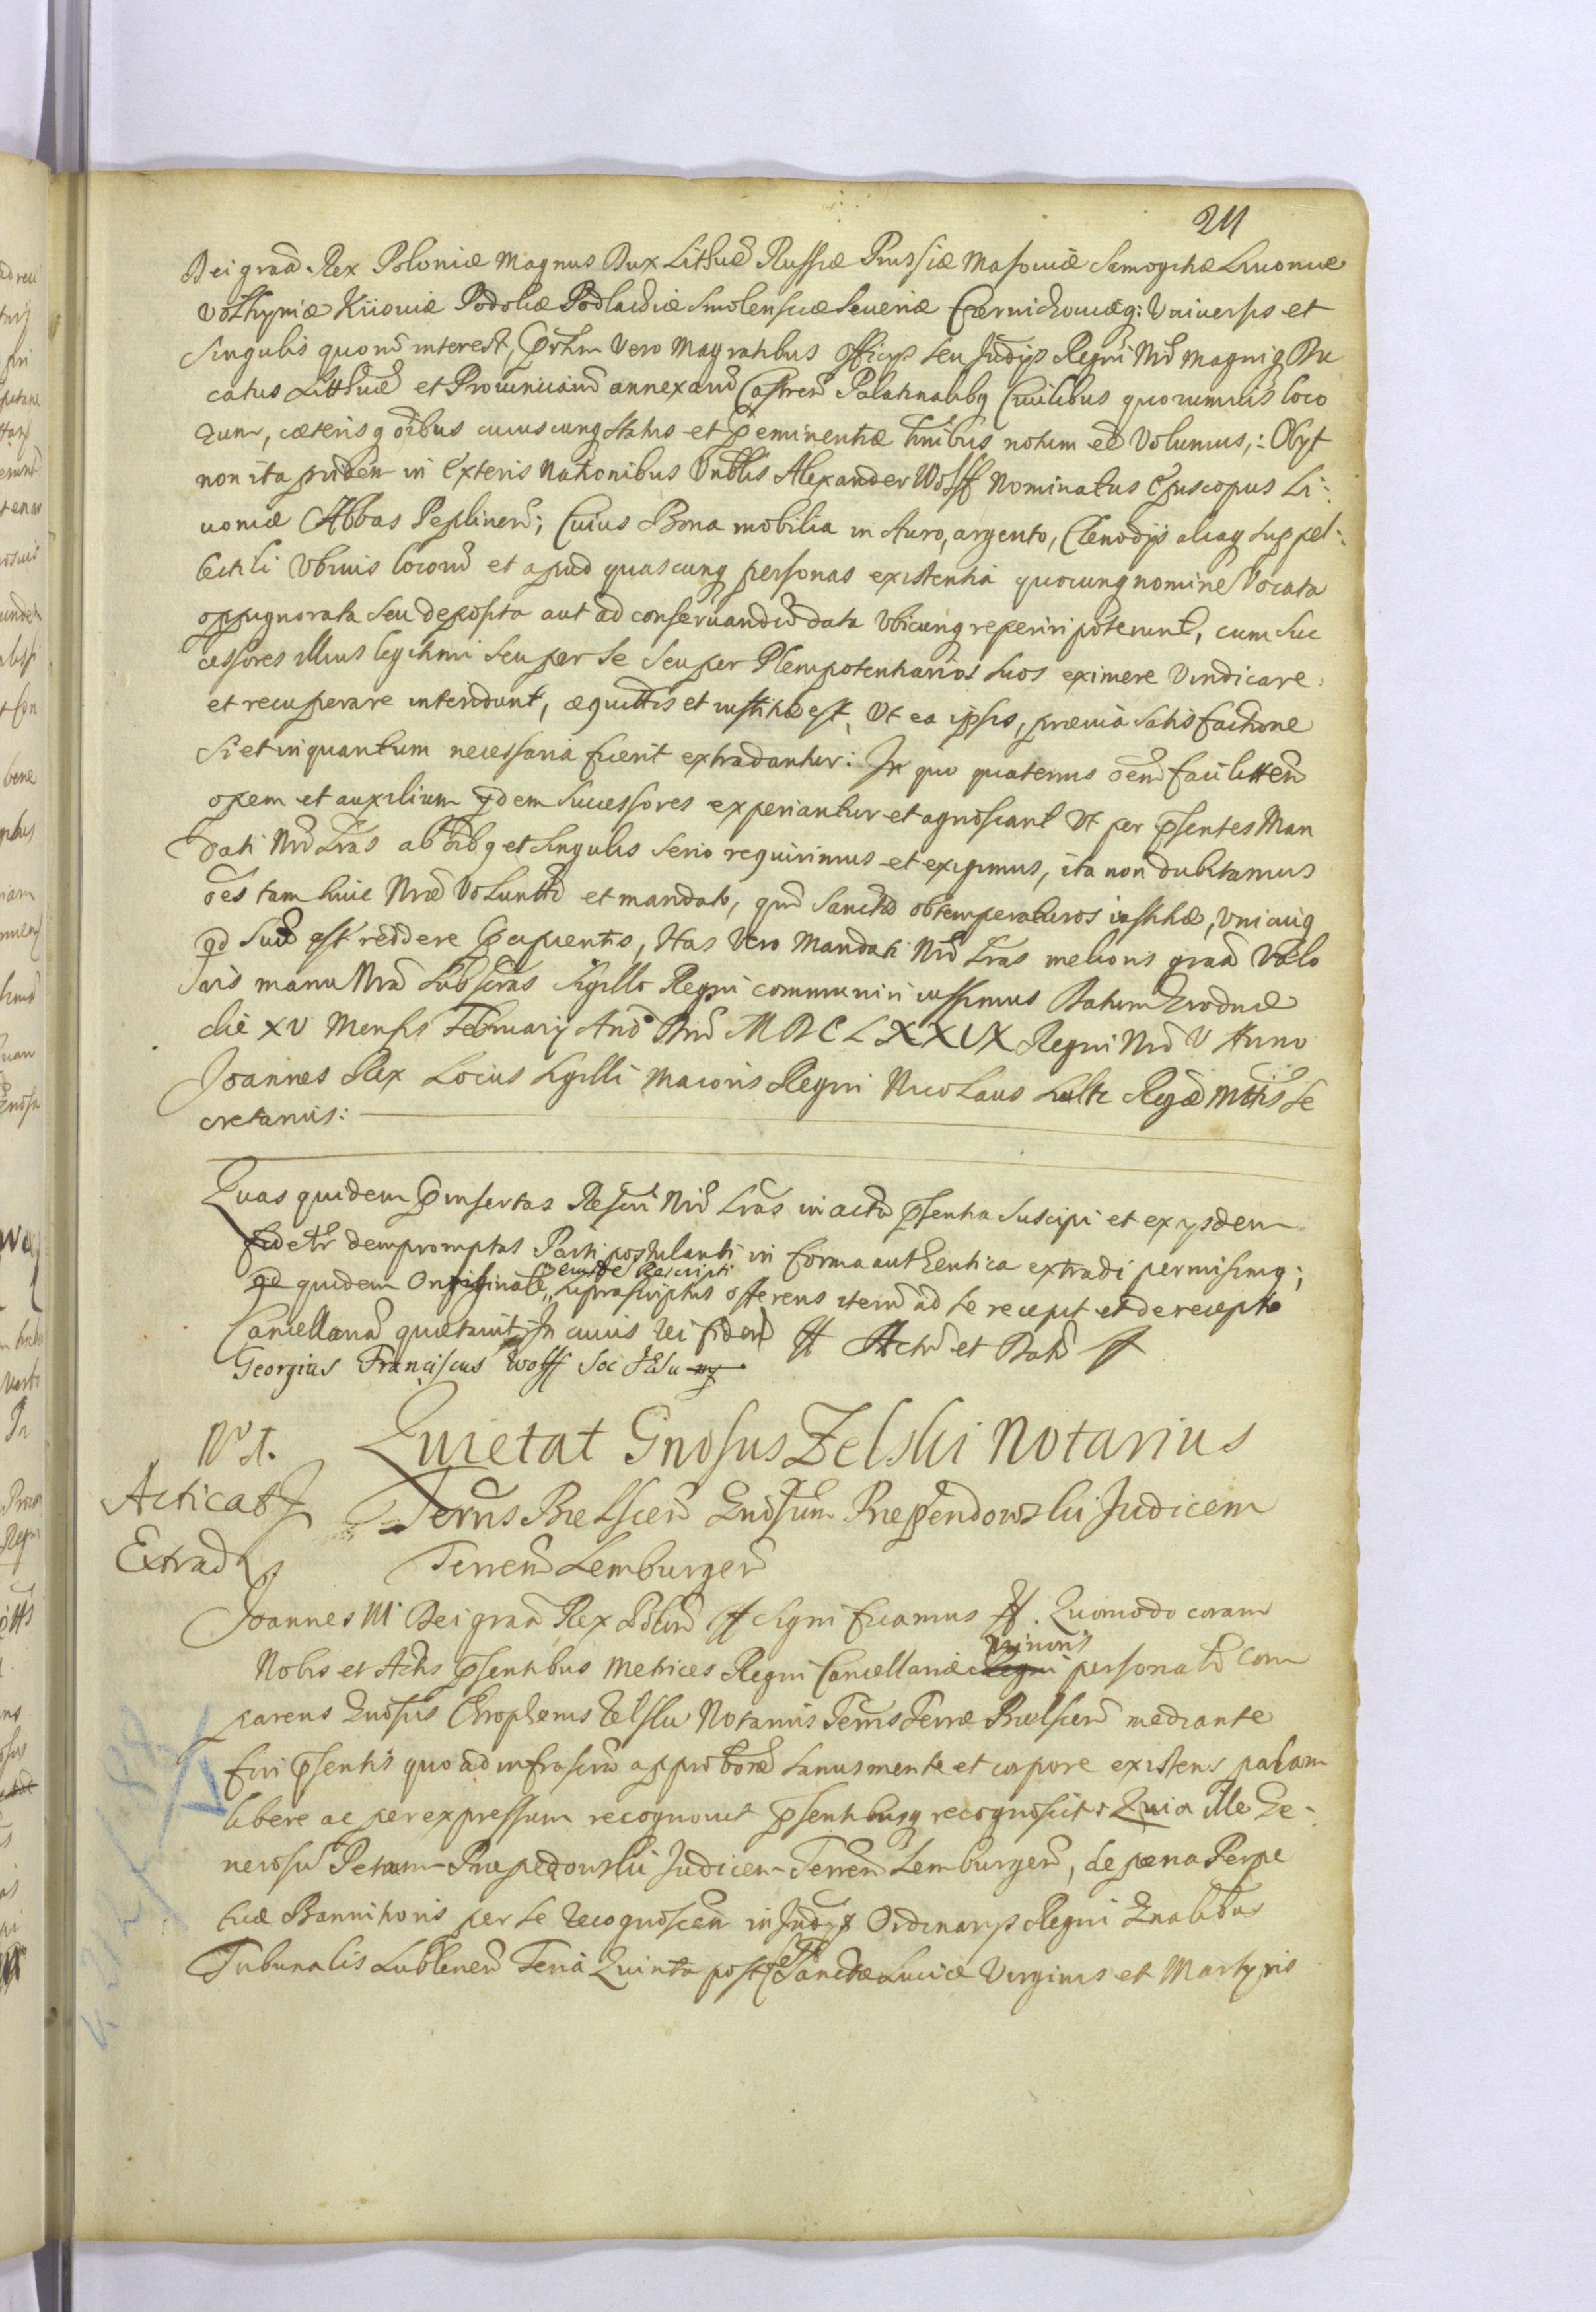 211
Dei graã Rex Poloniæ Magnus Dux Lithuæ Russiæ Prussiæ Masouiæ Samogitiæ Liuoniæ
Volhyniæ Kijouiæ Podoliæ Podlachiæ Smolensciæ Seueriæ Czernichouiæq: Vniuersis et
Singulis quorũ interest, p̃rtim Vero Magratibus officijs seu Judijs Regni Nrĩ Magniq Du
catus Litthuæ et Prouinciarũ annexarũ Castreñ Palatinalibq Ciuilibus quorumuis loco
rum, cæterisq oĩbus cuiuscunq status et p̃eminentiæ hnĩbus notum eẽ Volumus,: Obyt
non ita pridem in Exteris Nationibus Vrblis Alexander Wolff Nominatus Episcopus Li:
uoniæ Abbas Peplineñ; Cuius Bona mobilia in Auro, argento, Clenodijs aliaq suppel:
lectili Vbiuis locorũ et apud quascunq personas existentia quocunq nomine Vocata
oppignorata seu deposita aut ad conseruandũ data Vbicunq reperiri poterunt, cum Suc
cessores illius legitimi seu per se seu per Plenipotentiarios suos eximere Vindicare
et recuperare intendunt, æquittis et iustitiæ est, Vt ea ipsis, præuia satisfactione
si et inquantum necessaria fuerit extradantur: In quo quatenus oẽm facilitteм
opem et auxilium ijdem Successores experiantur et agnoscant Vt per p̃sentes Man
dati Nrĩ Lrãs ab oĩbq et singulis serio requirimus et exigimus, ita non dubitamus
oẽs tam huic Nræ Voluntti et mandato, quã Sanctæ obtemperaturos iustitiæ, Vnicuiq
qd Suũ est reddere p̃cipientis, Has Vero Mandati Nrĩ Lrãs melioris graã Valo
ris manu Nrã Subscrãs Sigillo Regni communiri iussimus Datum Grodnæ
die XV Mensis February Anõ Dnĩ MDCLXXIX Regni Nrĩ V Anno
Joannes Rex Locus Sigilli Maioris Regni Nicolaus Sultz Regæ Mttis Se
cretarius:
Quas quidem p̃insertas Rescrĩ Nrĩ Lrãs in acta p̃sentia Suscipi et ex ijsdem
fideтr depromptas Parti postulanti in forma authentica extradi permisimq;
qd quidem Originale eiusde Rescripti suprascriptus offerens iterũ ad se recepit et de recepto
Cancellariã quietauit In cuius rei fidem # Actũ et Datũ #
Georgius Franciscus Wolff Soc JEsu
N. 1. Quietat Gnosus Zelski Notarius
Acticat Terrũs Bielscieñ Gnosum Przependowski Judicem
Extrad Terreñ Lemburgeñ
Joannes III Dei graã Rex Poloñ # Significamus #. Quomodo coram
Nobis et Actis p̃sentibus Metrices Regni Cancellariæ Regni Minoris personatr Com
parens Gnosus Chrophorus Zelski Notarius Terrũs Terræ Bielscieñ mediante
sui p̃sentis quoad infrascrã approbõne sanus mente et corpore existens palam
libere ac per expressum recognouit p̃sentibusq recognoscit. Quia ille Ge-
nerosũ Petrum Przependowski Judicem Terreñ Lemburgeñ, de pæna Perpe
tuæ Bannitionis per se recognosceñ in Judijs Ordinarijs Regni Gnalibus
Tribunalis Lubleneñ Feria Quinta post Festũ Sanctæ Luciæ Virginis et Martyris